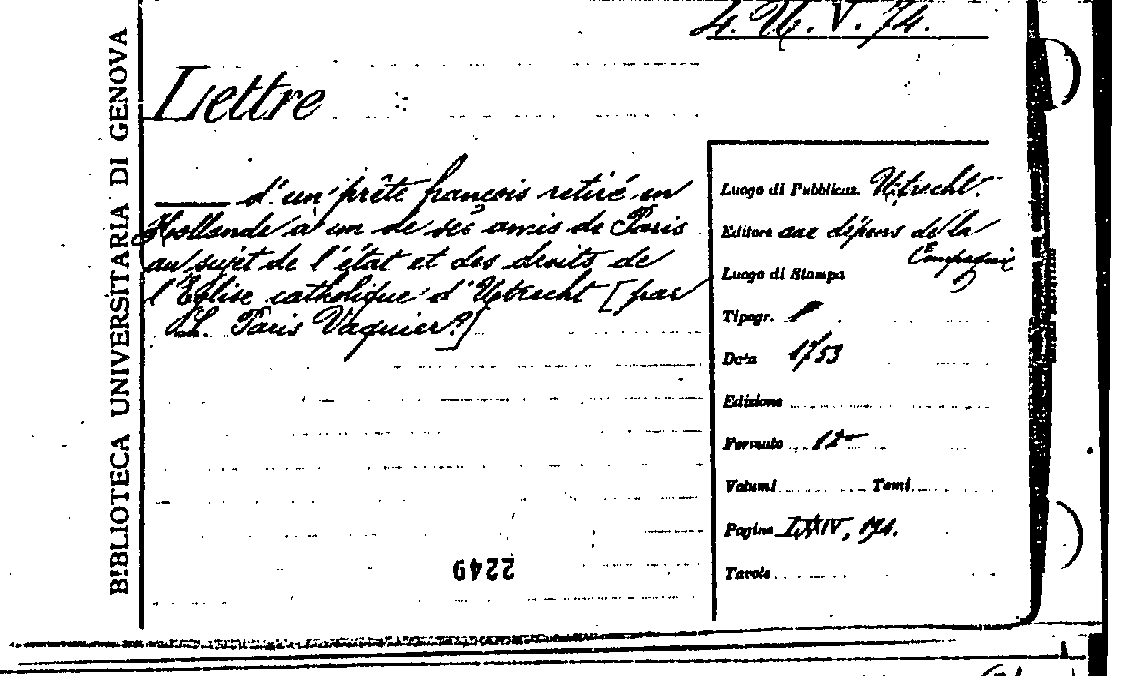 4. U. V. 74.
BIBLIOTECA UNIVERSITARIA DI GENOVA
Lettre
d'un prête françois retiré en
Hollande à un de ses amis de Paris
au sujet de l'état et des droits de
l'Eglise catholique d'Utrecht [par
Ch. Paris Vaquier?]
2249
Luogo di Pubblicaz. Utrecht.
Editore aux dépens de la
Compagnie
Luogo di Stampa
Tipogr.
Data 1753
Edizione
Formato 12°
Volumi Tomi
Pagine LXXIV, 174.
Tavole